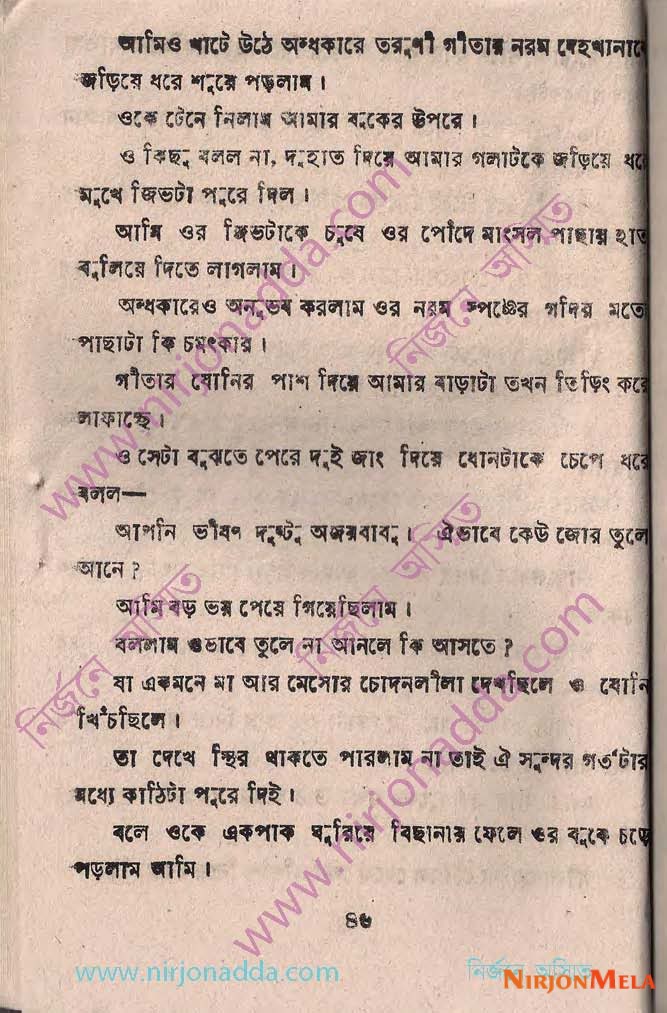 আমিও খাটে উঠে অন্ধকারে তরুণী গীতার নরম দেহখানাকে
জড়িয়ে ধরে শুয়ে পড়লাম।
ওকে টেনে নিলাম আমার বুকের উপরে।
ও কিছু বলল না, দুহাত দিয়ে আমার গলাটকে জড়িয়ে ধরে
মুখে জিভটা পুরে দিল।
আমি ওর জিভটাকে চুষে ওর পোঁদে মাংসল পাছায় হাত
বুলিয়ে দিতে লাগলাম।
অন্ধকারেও অনুভব করলাম ওর নরম স্পঞ্জের গদির মতো
পাছাটা কি চমৎকার।
গীতার যোনির পাশ দিয়ে আমার বাড়াটা তখন তিড়িং করে
লাফাচ্ছে।
ও সেটা বুঝতে পেরে দুই জাং দিয়ে ধোনটাকে চেপে ধরে
বলল—
আপনি ভীষণ দুষ্টু অজয়বাবু। ঐভাবে কেউ জোর তুলে
আনে?
আমি বড় ভয় পেয়ে গিয়েছিলাম।
বললাম ওভাবে তুলে না আনলে কি আসতে?
যা একমনে মা আর মেসোর চোদনলীলা দেখছিলে ও যোনি
খিঁচছিলে।
তা দেখে স্থির থাকতে পারলাম না তাই ঐ সুন্দর গর্তটার
মধ্যে কাঠিটা পুরে দিই।
বলে ওকে একপাক ঘুরিয়ে বিছানায় ফেলে ওর বুকে চড়ে
পড়লাম আমি।
৪৬
www.nirjonadda.com
নির্জনে অসিত
www.nirjonadda.com
নির্জনে অসিত
নির্জনে অসিত
www.nirjonadda.com
নির্জনে অসিত
NIRJONMELA